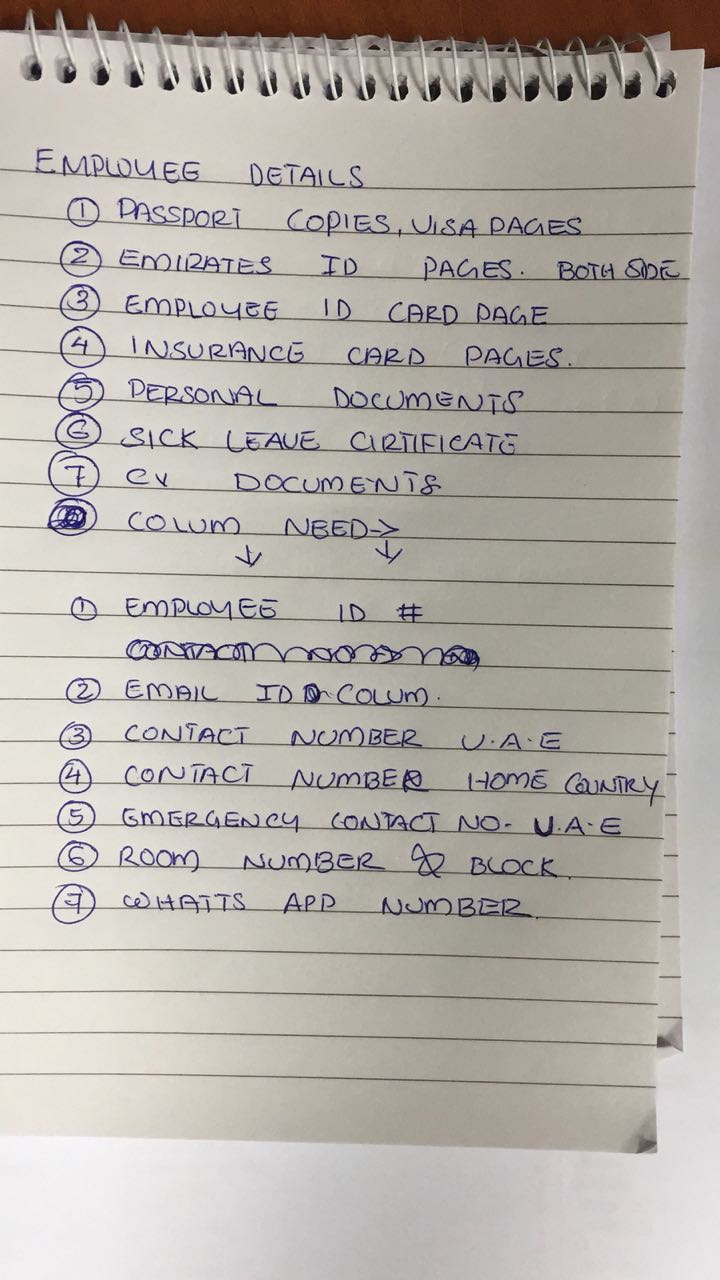 EMPLOYEE DETAILS
① PASSPORT COPIES, VISA PAGES
② EMIRATES ID PAGES. BOTH SIDE
③ EMPLOYEE ID CARD PAGE
④ INSURANCE CARD PAGES.
⑤ PERSONAL DOCUMENTS
⑥ SICK LEAVE CIRTIFICATE
⑦ CV DOCUMENTS
COLUM NEED→
↓ ↓
① EMPLOYEE ID #
② EMAIL ID COLUM.
③ CONTACT NUMBER U.A.E
④ CONTACT NUMBER HOME COUNTRY
⑤ EMERGENCY CONTACT NO- U.A.E
⑥ ROOM NUMBER & BLOCK.
⑦ WHATTS APP NUMBER.